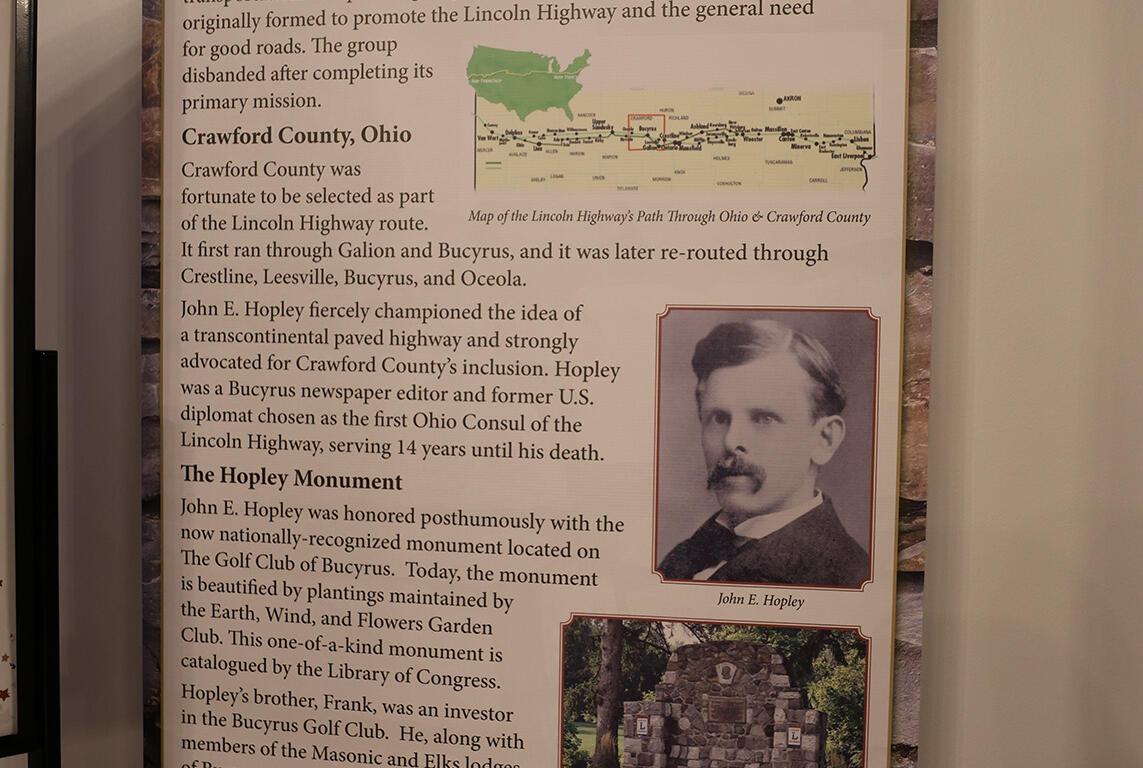 originally formed to promote the Lincoln Highway and the general need
for good roads. The group
disbanded after completing its
primary mission.
Crawford County, Ohio
Crawford County was
fortunate to be selected as part
of the Lincoln Highway route.
AKRON
SUMMIT
HURON
RICHLAND
CRAWFORD
HANCOCK
Upper
Sandusky
Bucyrus
Ashland
Massillon
Canton
COLUMBIANA
Van Wert
Delphos
Lima
Galion
Mansfield
Wooster
Minerva
Lisbon
East Liverpool
MERCER
AUGLAIZE
ALLEN
HARDIN
MARION
HOLMES
TUSCARAWAS
JEFFERSON
SHELBY
LOGAN
UNION
DELAWARE
MORROW
KNOX
COSHOCTON
CARROLL
Map of the Lincoln Highway's Path Through Ohio & Crawford County
It first ran through Galion and Bucyrus, and it was later re-routed through
Crestline, Leesville, Bucyrus, and Oceola.
John E. Hopley fiercely championed the idea of
a transcontinental paved highway and strongly
advocated for Crawford County's inclusion. Hopley
was a Bucyrus newspaper editor and former U.S.
diplomat chosen as the first Ohio Consul of the
Lincoln Highway, serving 14 years until his death.
John E. Hopley
The Hopley Monument
John E. Hopley was honored posthumously with the
now nationally-recognized monument located on
The Golf Club of Bucyrus. Today, the monument
is beautified by plantings maintained by
the Earth, Wind, and Flowers Garden
Club. This one-of-a-kind monument is
catalogued by the Library of Congress.
Hopley's brother, Frank, was an investor
in the Bucyrus Golf Club. He, along with
members of the Masonic and Elks lodges
L
L